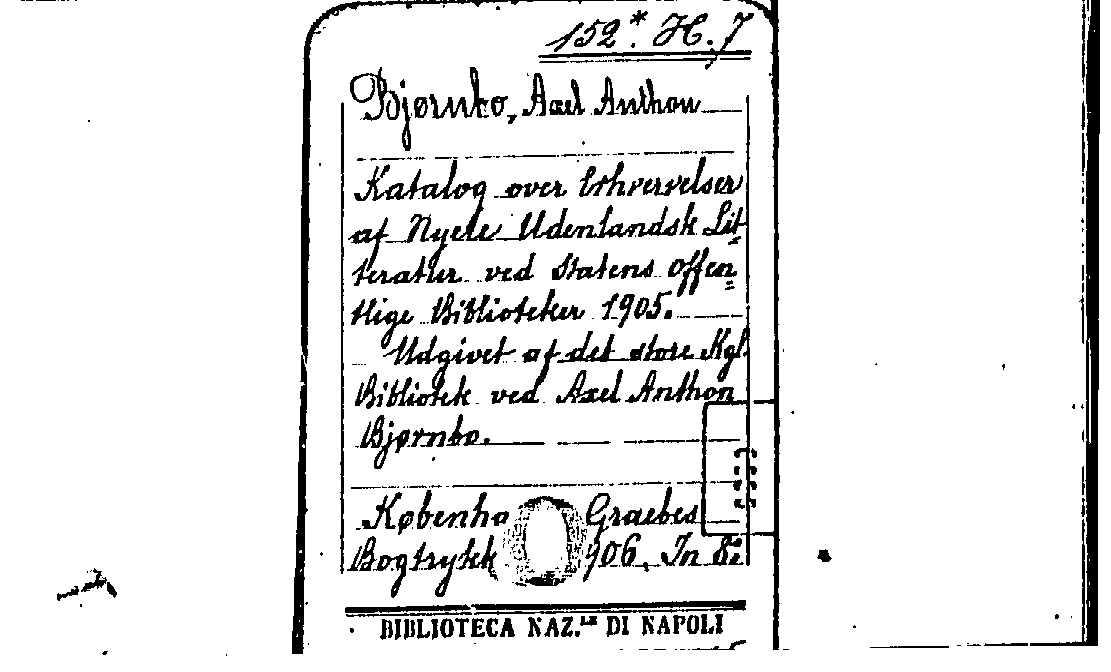 152*. H. 7
Bjørnbo, Axel Anthon
Katalog over Erhvervelser
af Nyere Udenlandsk Lit=
teratur ved Statens offen=
tlige Biblioteker 1905.
Udgivet af det store Kgl.
Bibliotek ved Axel Anthon
Bjørnbo.
Københa Graebes
Bogtrykk 906. In 8º
BIBLIOTECA NAZ.LE DI NAPOLI